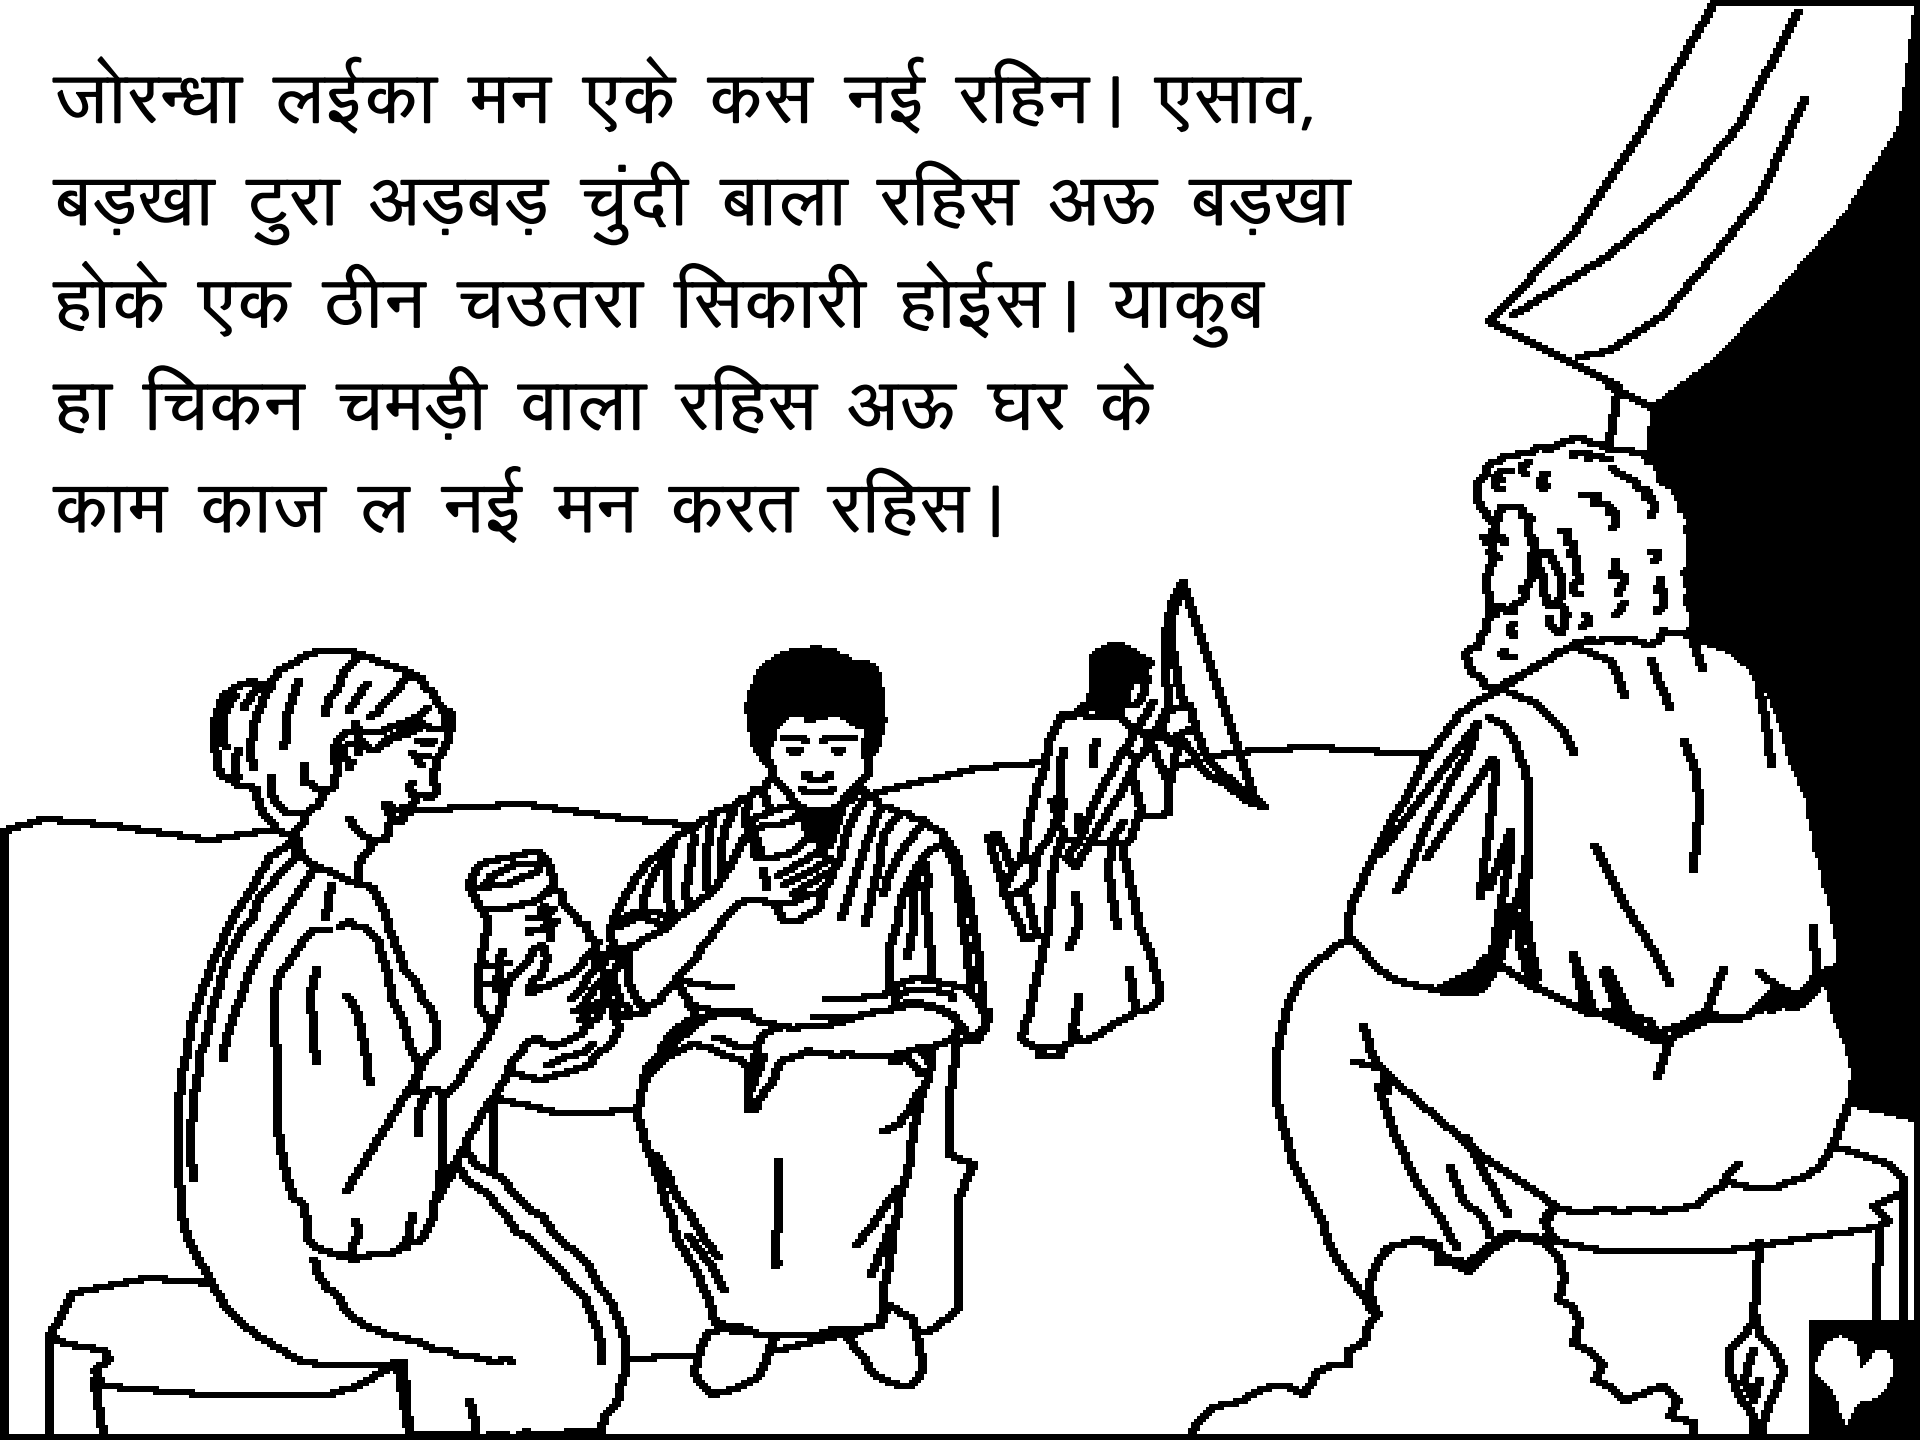 जोरन्धा लईका मन एके कस नई रहिन। एसाव,
बड़खा टुरा अड़बड़ चुंदी बाला रहिस अऊ बड़खा
होके एक ठीन चउतरा सिकारी होईस। याकुब
हा चिकन चमड़ी वाला रहिस अऊ घर के
काम काज ल नई मन करत रहिस।